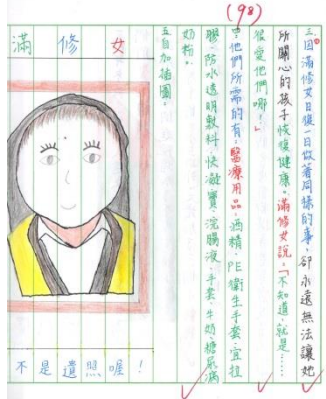 (98)
三.因滿修女日復一日做著同樣的事,卻永遠無法讓她
所關心的孩子恢復健康。滿修女說:「不知道,就是……
很愛他們哪!」
四.他們所需的有:醫療用品、酒精、PE衛生手套、宜拉
膠、防水透明敷料、快潔寶、浣腸液、手套、牛奶糖尿濕
奶粉。
五.自加插圖。
滿修女
不是遺照喔!